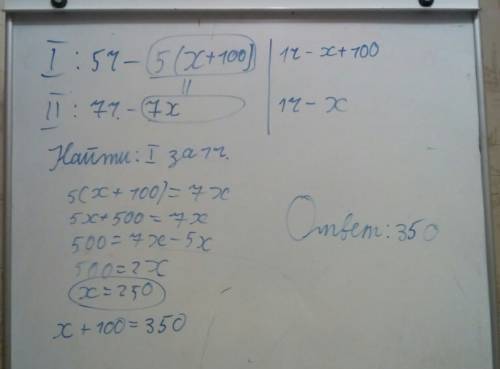 I : 5ч - 5(x+100) | 1ч - x+100
=
II : 7ч. - 7x | 1ч - x
Найти: I за 1ч.
5(x+100)=7x
5x+500=7x
500=7x-5x
500=2x
x=250
x+100=350
Ответ: 350